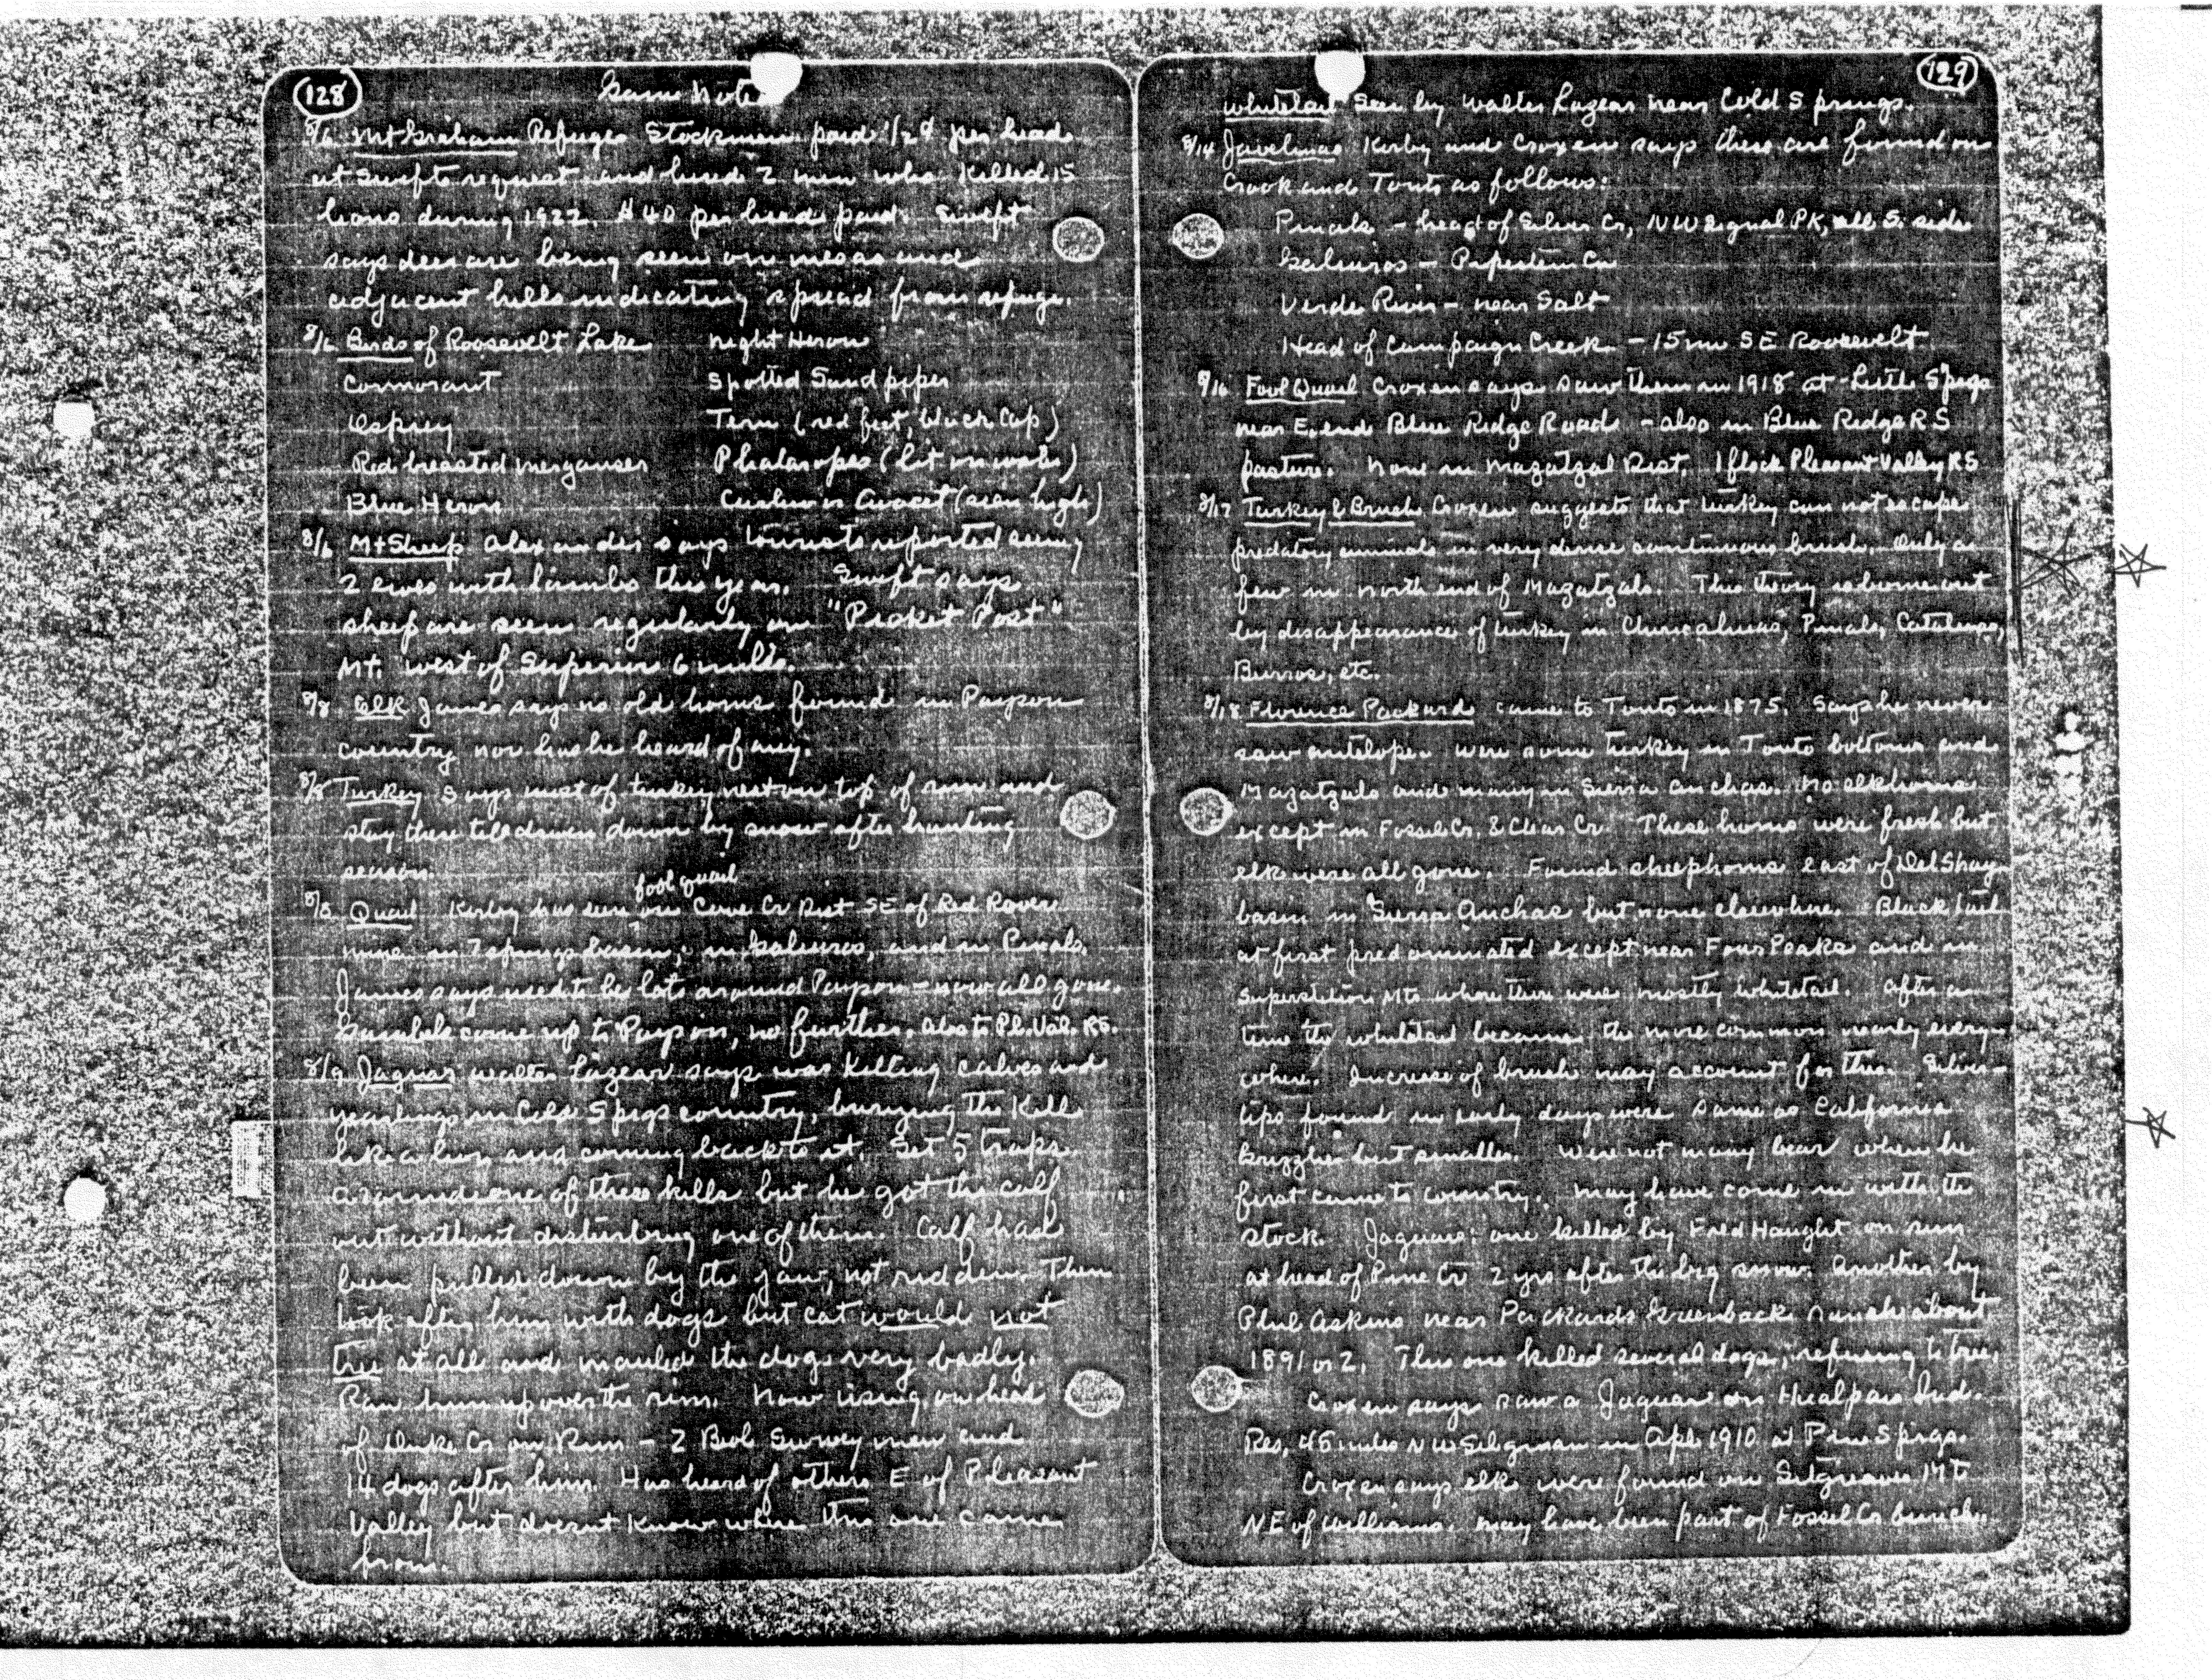 128
Game Notes
8/6 Mt Graham Refuge Stockmen paid 1/2¢ per head
at Swifts request and hired 2 men who killed 15
lions during 1922. $40 per head paid. Swift
says deer are being seen on mesas and
adjacent hills indicating spread from refuge.
8/6 Birds of Roosevelt Lake Night Heron
Cormorant Spotted Sandpiper
Osprey Tern (red feet, black cap)
Red breasted merganser Phalaropes (lit on water)
Blue Heron Curlew or Avocet (seen high)
8/6 Mt Sheep Alexander says tourists reported seeing
2 ewes with lambs this year. Swift says
sheep are seen regularly on "Picket Post"
Mt. west of Superior 6 miles.
8/8 Elk James says no old horns found in Payson
country nor has he heard of any.
8/8 Turkey Says most of turkey nest on top of rim and
stay there till driven down by snow after hunting
season.
fool quail
8/8 Quail Kirby has seen on Cave Cr Dist SE of Red Rover
mine in 7 springs basin; in Galiuros, and in Pinals.
James says used to be lots around Payson - now all gone.
Gambels come up to Payson, no further. Also to Pl. Val. RS.
8/9 Jaguar Walter Lazear says was killing calves and
yearlings in Cold Spgs country, burying the kill
like a lion and coming back to it. Set 5 traps
around one of these kills but he got the calf
out without disturbing one of them. Calf had
been pulled down by the jaw, not ridden. Then
took after him with dogs but cat would not
tree at all and mauled the dogs very badly.
Ran him up over the rim. Now using on head
of Duke Cr on Rim - 2 Biol Survey men and
14 dogs after him. Has heard of others E of Pleasant
Valley but doesnt know where this one came
from.
129
Whitetail seen by Walter Lazear near Cold Springs.
8/14 Javelinas Kirby and Croxen says these are found on
Crook and Tonto as follows:
Pinals - head of Silver Cr, NW Signal PK, all S. side
Galiuros - Pipestem Cn
Verde River - near Salt
Head of Campaign Creek - 15 mi SE Roosevelt
8/16 Fool Quail Croxen says saw them in 1918 at Little Spgs
near E. end Blue Ridge Road - also in Blue Ridge RS
pasture. None in Mazatzal Dist. 1 flock Pleasant Valley RS
8/17 Turkey & Brush Croxen suggests that turkey can not escape
predatory animals in very dense continuous brush. Only a
few in north end of Mazatzals. This theory is borne out
by disappearance of turkey in Chiricahuas, Pinals, Catalinas,
Burros, etc.
8/18 Florence Packard came to Tonto in 1875. Says he never
saw antelope. Were some turkey in Tonto bottoms and
Mazatzals and many in Sierra Anchas. No elk horns
except in Fossil Cr. & Clear Cr. These horns were fresh but
elk were all gone. Found sheep horns east of Del Shay
basin in Sierra Anchas but none elsewhere. Black tail
at first predominated except near Four Peaks and in
Superstition Mts where there were mostly whitetail. After a
time the whitetail became the more common nearly every-
where. Increase of brush may account for this. Silver-
tips found in early days were same as California
Grizzlies but smaller. Were not many bear when he
first came to country. May have come in with the
stock. Jaguars: one killed by Fred Haught on rim
at head of Pine Cr 2 yrs after the big snow. Another by
Phil Askins near Packards Greenback ranch about
1891 or 2. This one killed several dogs, refusing to tree.
Croxen says saw a Jaguar on Hualpais Ind.
Res, 45 miles NW Seligman in Apl. 1910 at Pine Spgs.
Croxen says elk were found on Sitgreaves Mt
NE of Williams. May have been part of Fossil Cr bunch.